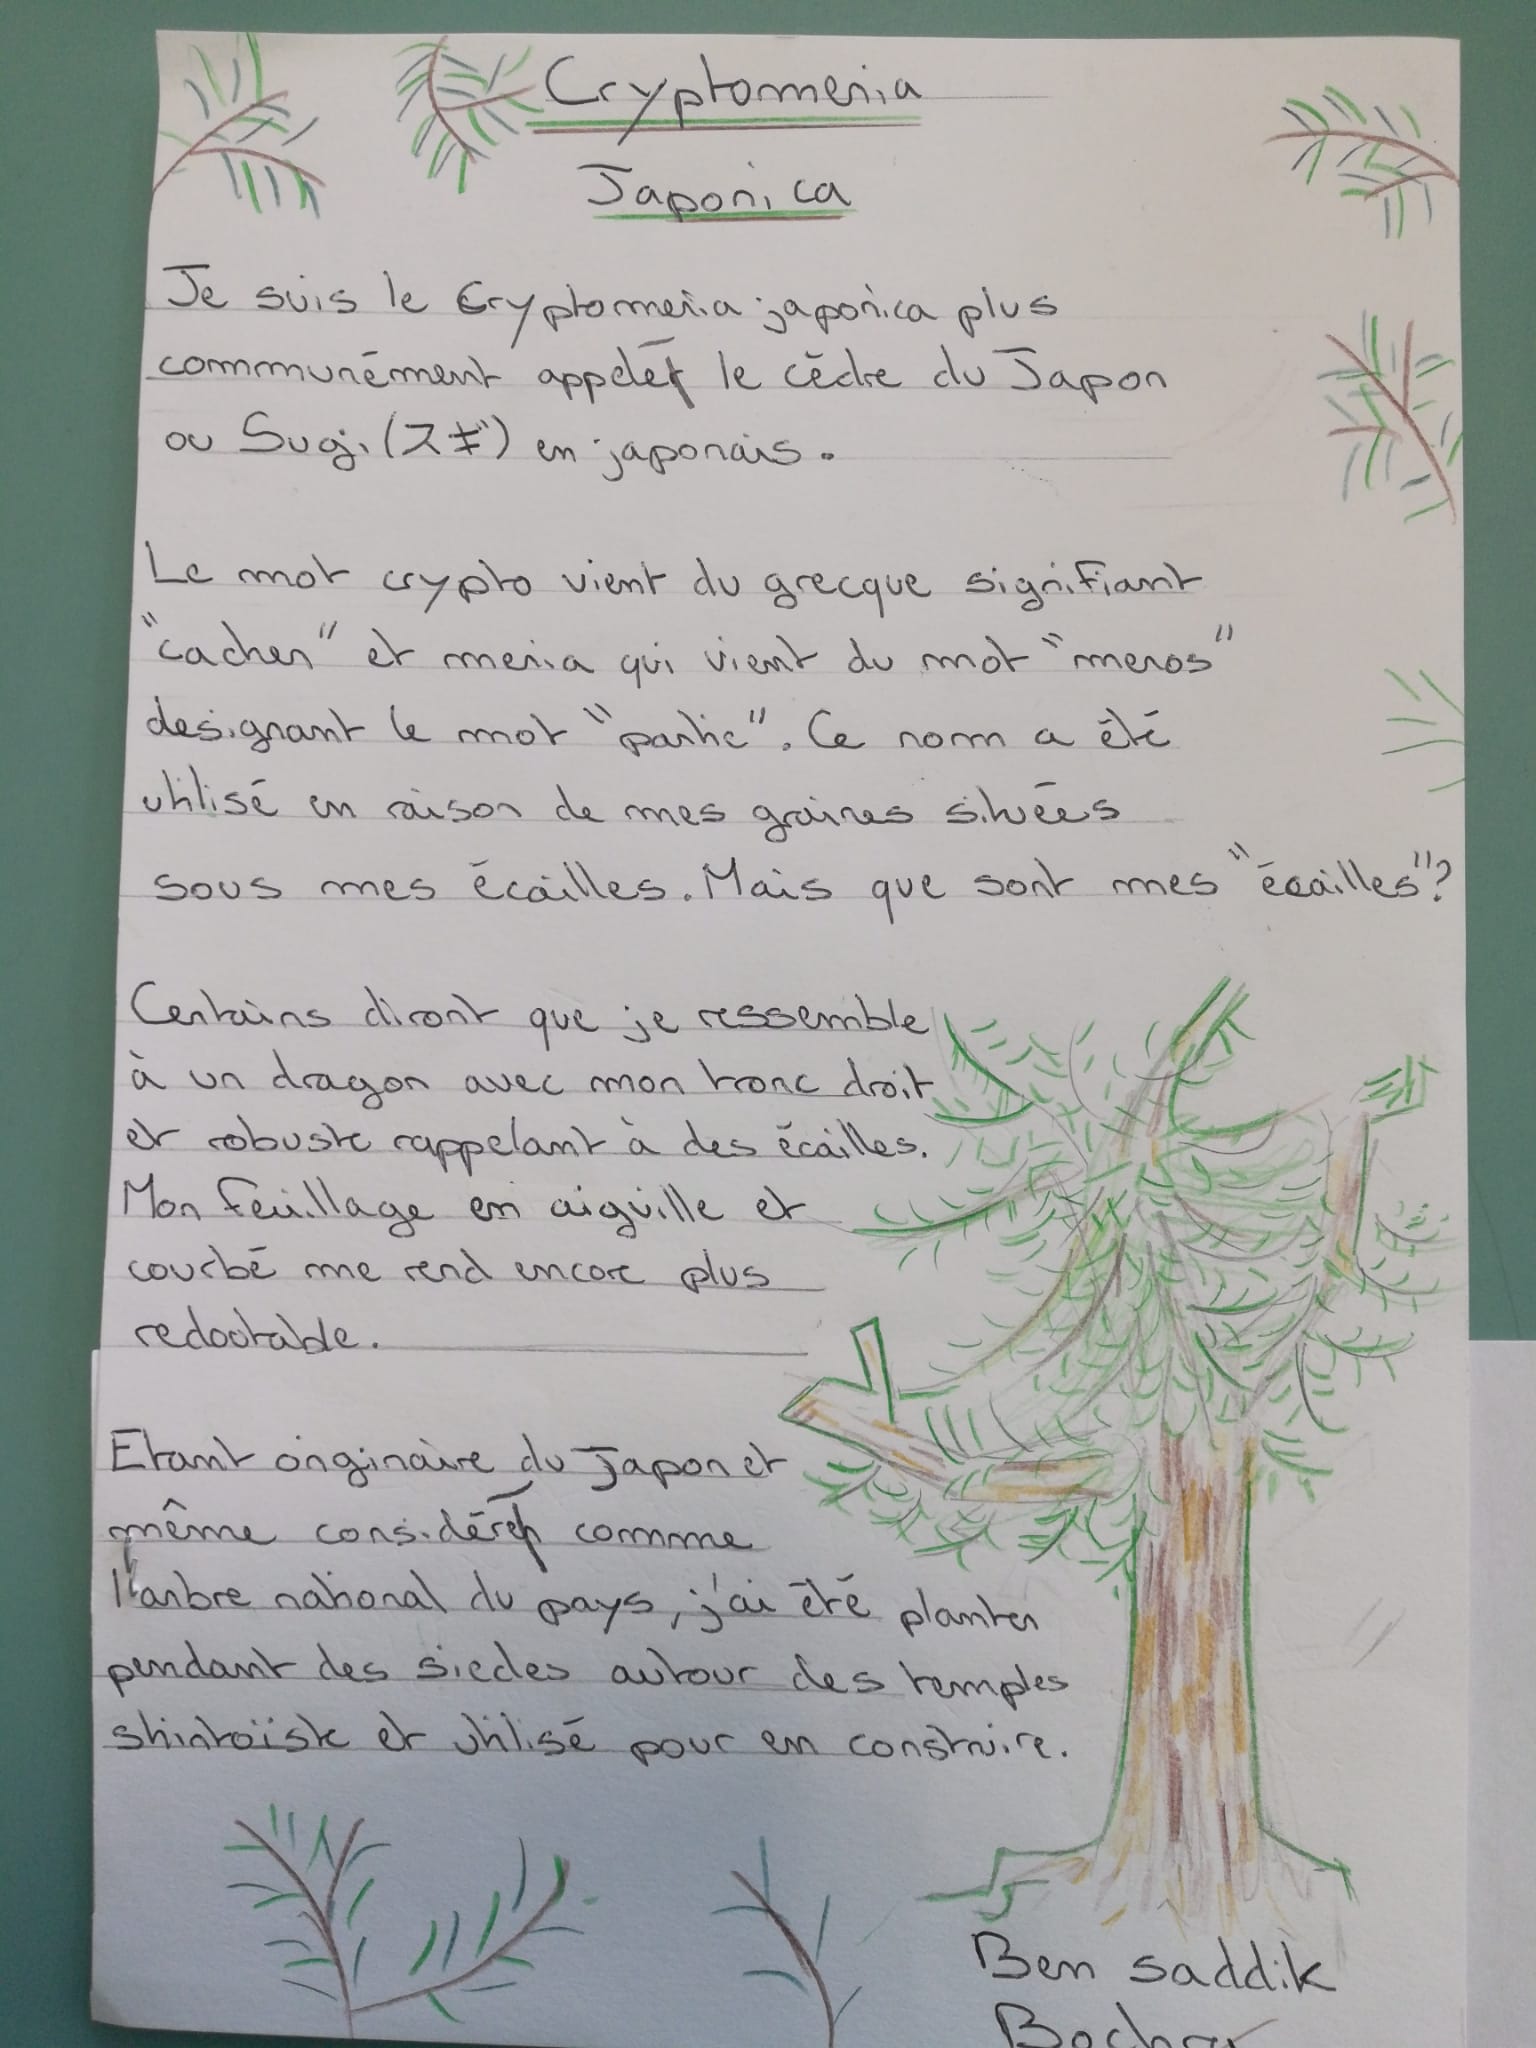 Cryptomeria
Japonica
Je suis le Cryptomeria japonica plus
communément appelé le cèdre du Japon
ou Sugi (スギ) en japonais.
Le mot crypto vient du grecque signifiant
"cacher" et meria qui vient du mot "meros"
designant le mot "partie". Ce nom a été
utilisé en raison de mes graines situées
sous mes écailles. Mais que sont mes "écailles"?
Certains diront que je ressemble
à un dragon avec mon tronc droit
et robuste rappelant à des écailles.
Mon feuillage en aiguille et
courbé me rend encore plus
redoutable.
Etant originaire du Japon et
même considéré comme
l'arbre national du pays, j'ai été planter
pendant des siecles autour des temples
shintoïste et utilisé pour en construire.
Ben saddik